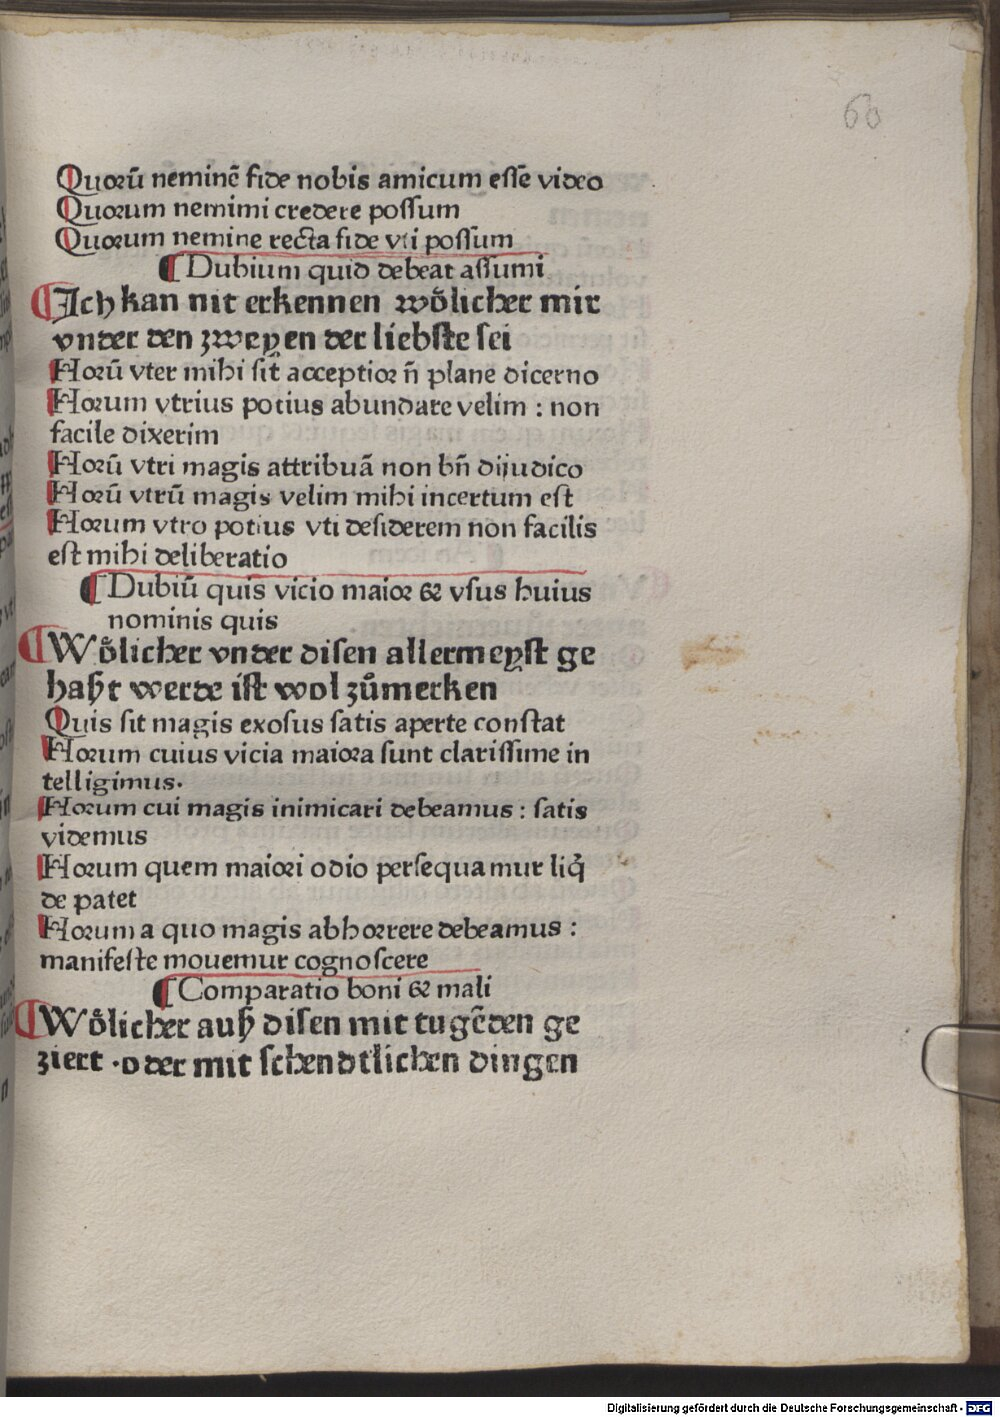 60
Quorū neminē fide nobis amicum esse̅ video
Quorum nemimi credere possum
Quorum nemine recta fide vti possum
¶Dubium quid debeat assumi
¶Ich kan nit erkennen wo̊licher mir
vnder den zweyen der liebste sei
Horū vter mihi sit̄ acceptior n̄ plane dicerno
Horum vtrius potius abundare velim : non
facile dixerim
Horū vtri magis attribuā non bn̄ dijudico
Horū vtrū magis velim mihi incertum est
Horum vtro potius vti desiderem non facilis
est mihi deliberatio
¶Dubiū quis vicio maior & vsus huius
nominis quis
¶Wo̊licher vnder disen allermeyst ge
haßt werde ist wol zůmerken
Quis sit magis exosus satis aperte constat
Horum cuius vicia maiora sunt clarissime in
telligimus.
Horum cui magis inimicari debeamus : satis
videmus
Horum quem maiori odio persequamur liq̄
de patet
Horum a quo magis abhorrere debeamus :
manifeste mouemur cognoscere
¶Comparatio boni & mali
¶Wo̊licher auß disen mit tugēden ge
ziert .oder mit schendtlichen dingen
Digitalisierung gefördert durch die Deutsche Forschungsgemeinschaft - DFG